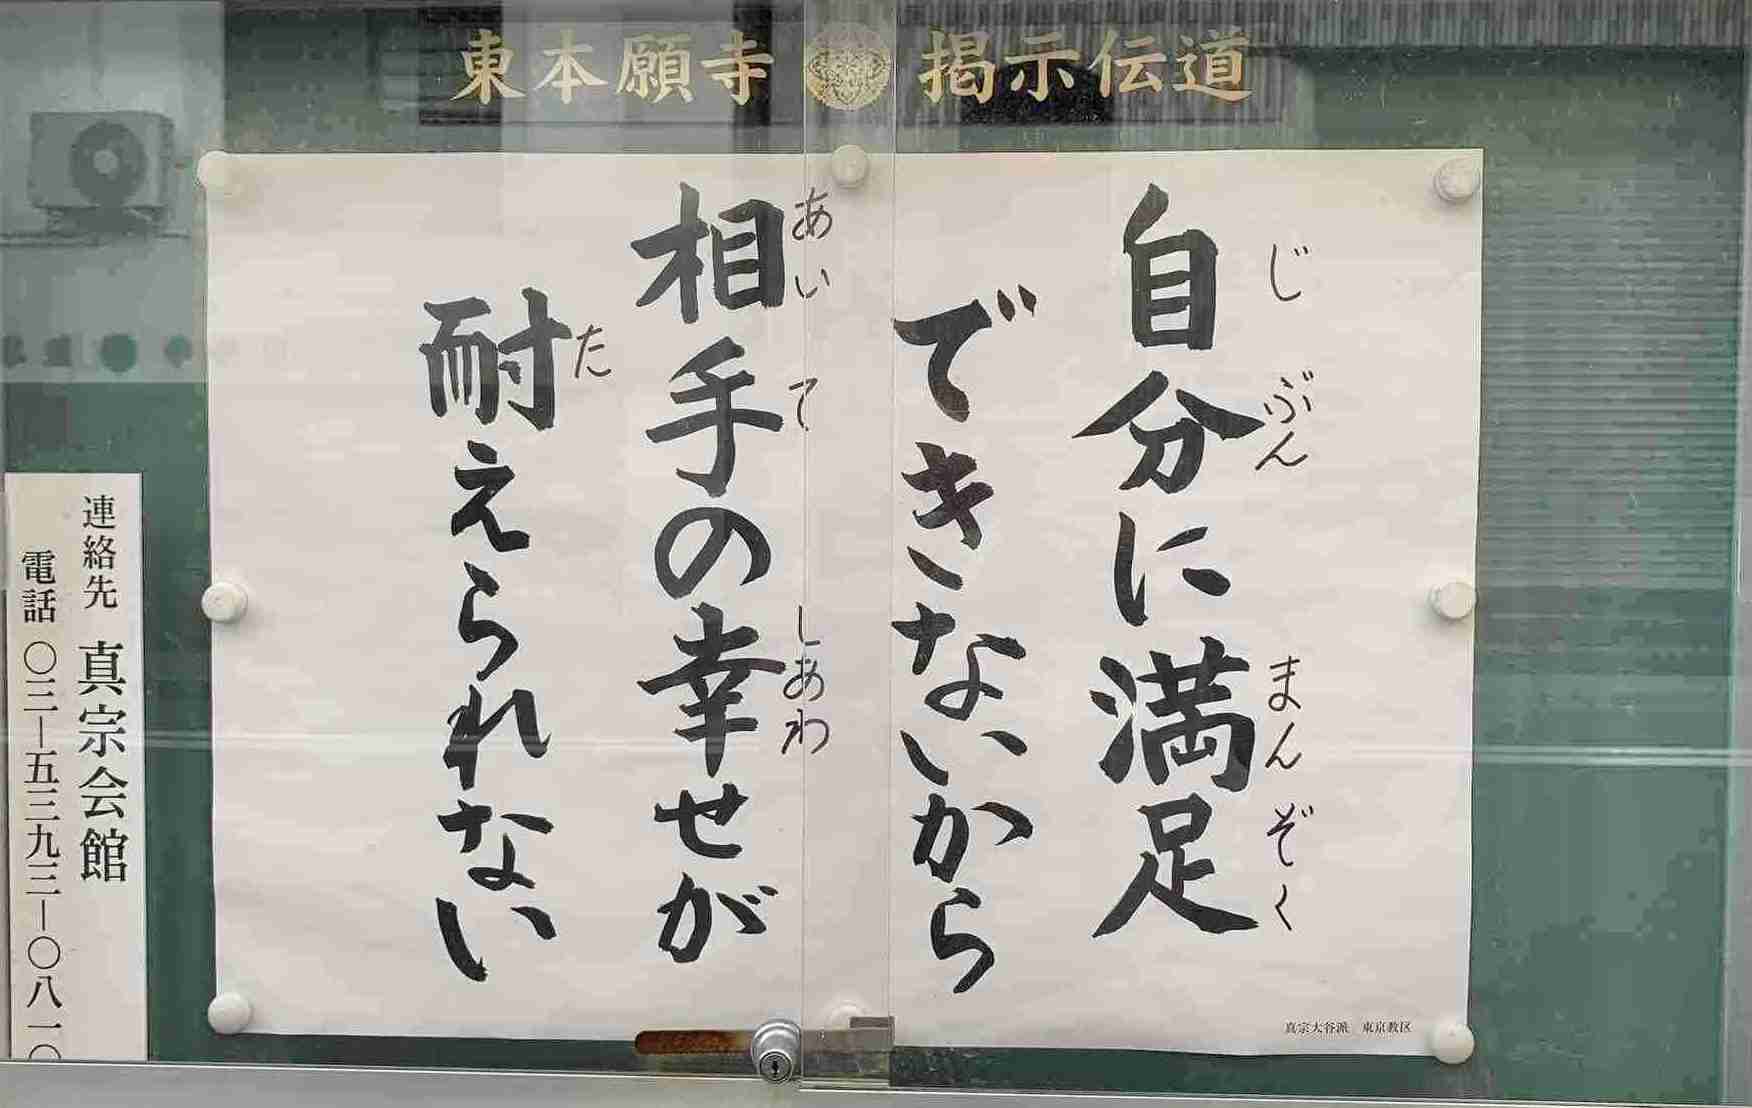 東本願寺 掲示伝道
自分に満足
じぶん まんぞく
できないから
相手の幸せが
あいて しあわ
耐えられない
た
真宗大谷派 東京教区
連絡先 真宗会館
電話 〇三ー五三九三ー〇八一〇